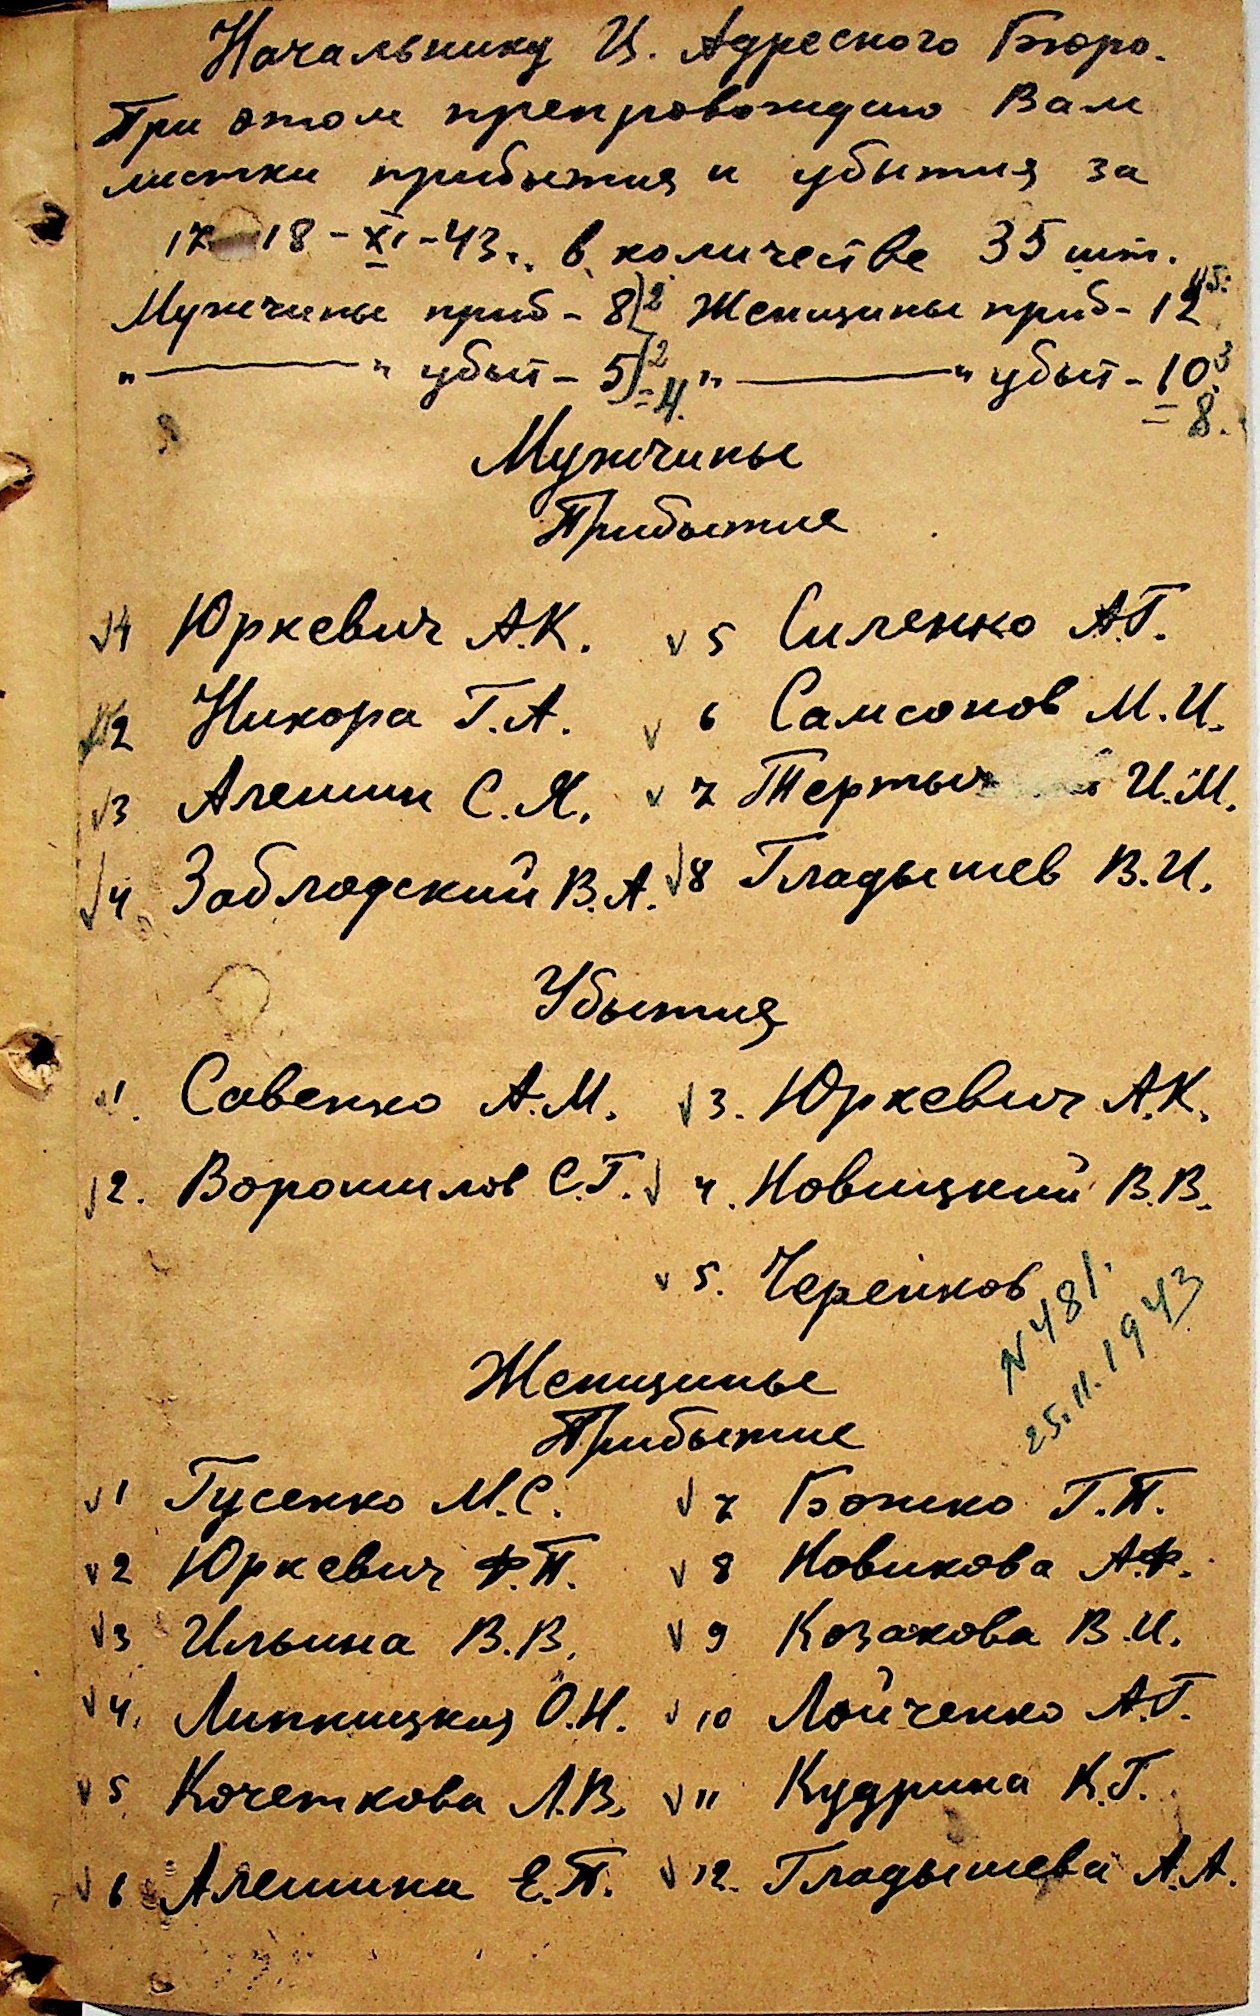 Начальнику Ц. Адресного Бюро.
При этом препровождаю Вам
листки прибытия и убытия за
17 18-XI-43г. в количестве 35 шт.
Мужчины приб - 8 2 Женщины приб - 12 5.
"———" убыт - 5 2 "———" убыт - 10 3
= 4. = 8.
Мужчины
Прибытие
1 Юркевич А.К. 5 Силенко А.Г.
2 Никора Г.А. 6 Самсонов М.И.
3 Алешин С.Я. 7 И.М.
4 Заблодский В.А. 8 Гладышев В.И.
Убытия
1. Савенко А.М. 3. Юркевич А.К.
2. Ворошилов С.Г. 4. Новицкий В.В.
5. Черенков
N 481.
25.11.1943
Женщины
Прибытие
1 Гусенко М.С. 7 Божко Г.П.
2 Юркевич Ф.П. 8 Новикова А.Ф.
3 Ильина В.В. 9 Козакова В.И.
4. Липницкая О.Н. 10 Лойченко А.Г.
5 Кочеткова Л.В. 11 Кудрина К.Г.
6 Алешина Е.П. 12. Гладышева А.А.